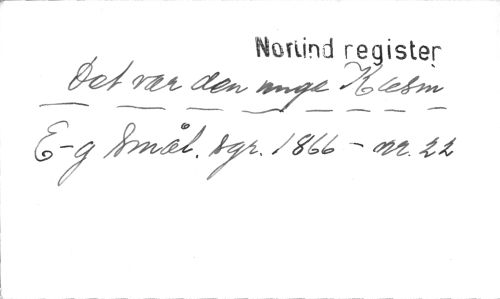 Norlind register
Det var den unge
E-g Smål. sgr. 1866 - nr. 22